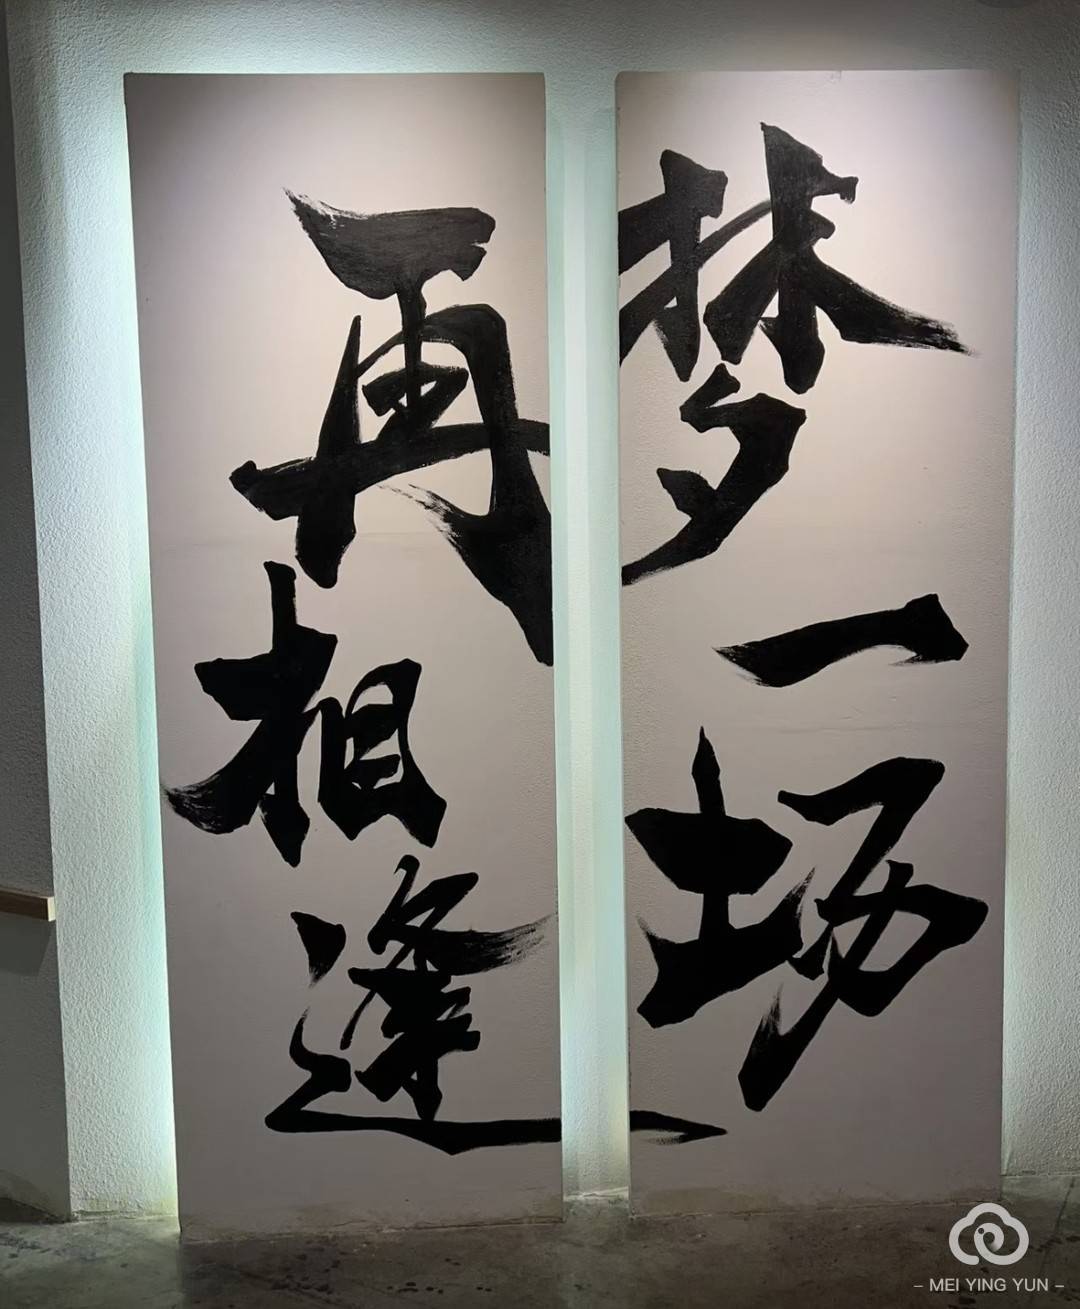 梦一场
再相逢
– MEI YING YUN –